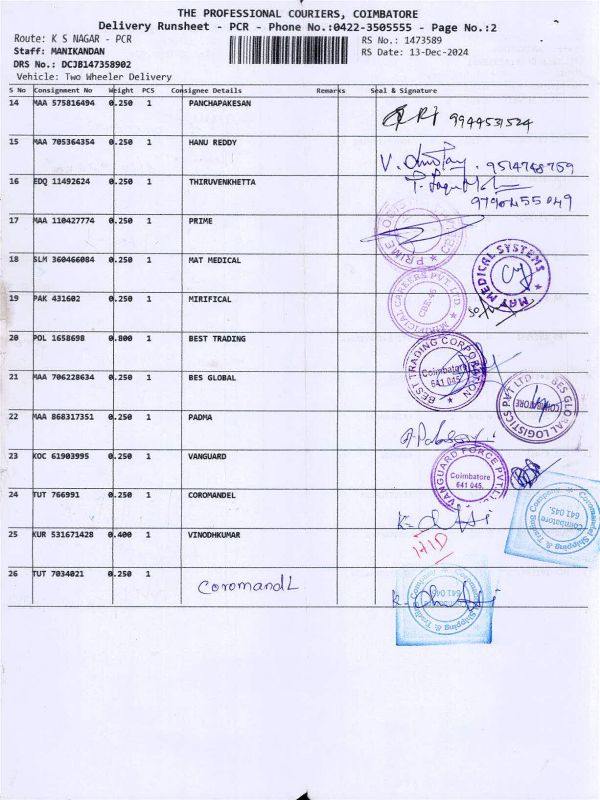 THE PROFESSIONAL COURIERS, COIMBATORE
Delivery Runsheet - PCR - Phone No.:0422-3505555 - Page No.:2
Route: K S NAGAR - PCR
RS No.: 1473589
Staff: MANIKANDAN
RS Date: 13-Dec-2024
DRS No.: DCJB147358902
Vehicle: Two Wheeler Delivery
S No Consignment No Weight PCS Consignee Details Remarks Seal & Signature
14 MAA 575816494 0.250 1 PANCHAPAKESAN
9944531524
15 MAA 705364354 0.250 1 HANU REDDY
9514768759
16 EDQ 11492624 0.250 1 THIRUVENKHETTA
9790455049
17 MAA 110427774 0.250 1 PRIME
PRIME
18 SLM 360466084 0.250 1 MAT MEDICAL
MAT MEDICAL SYSTEMS
19 PAK 431602 0.250 1 MIRIFICAL
CAREERS PVT LTD
CBE-45
20 POL 1658698 0.800 1 BEST TRADING
BEST TRADING CORPORATION
Coimbatore
641 045.
21 MAA 706228634 0.250 1 BES GLOBAL
BES GLOBAL LOGISTICS PVT LTD
COIMBATORE
22 MAA 868317351 0.250 1 PADMA
23 KOC 61903995 0.250 1 VANGUARD
VANGUARD FORCE PVT LTD
Coimbatore
641 045.
24 TUT 766991 0.250 1 COROMANDEL
Coromandel Shipping & Trading Company
Coimbatore
641 045.
25 KUR 531671428 0.400 1 VINODHKUMAR
HID
26 TUT 7034021 0.250 1
Coromandl
Shipping & Trading Company
641 045